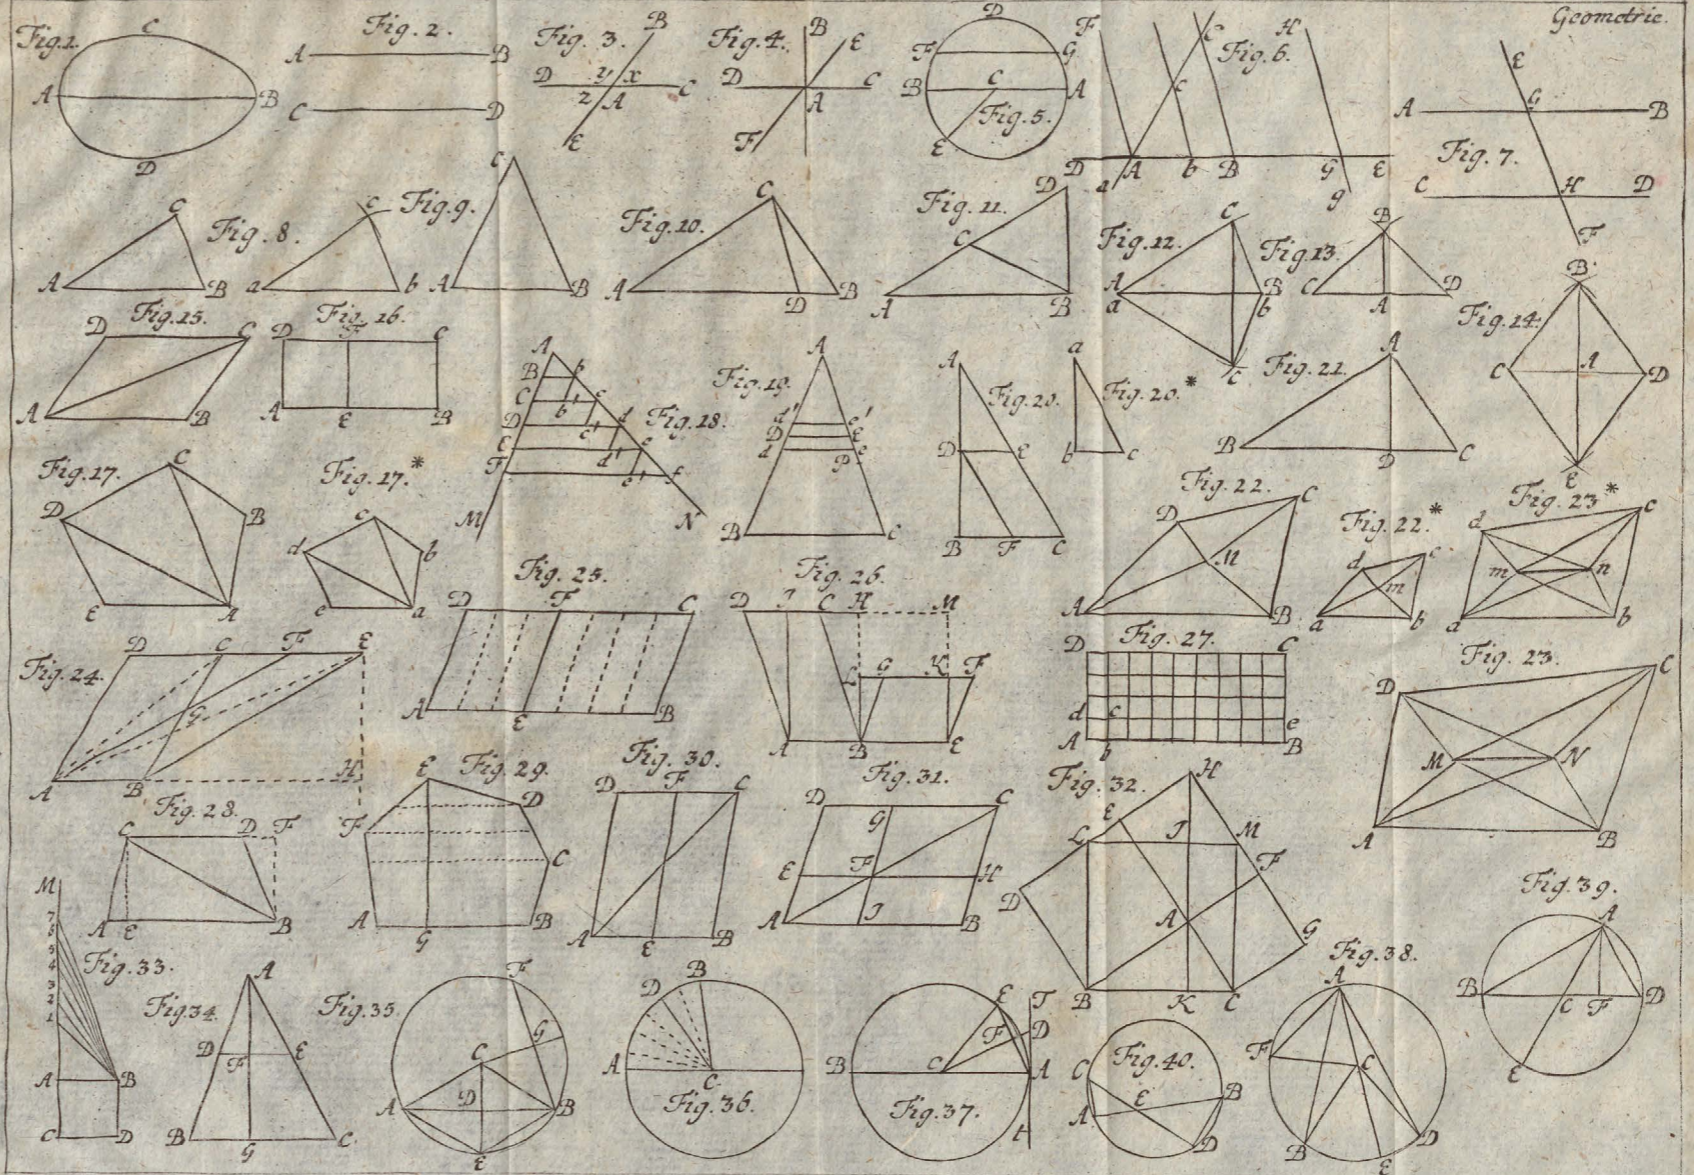 Geometrie.
Fig.1.
C
A
B
D
Fig. 2.
A
B
C
D
Fig. 3.
B
D
y
x
C
z
A
E
Fig. 4.
B
E
D
C
A
F
D
F
G
B
C
A
E
Fig. 5.
F
C
Fig. 6.
H
c
D
a
A
b
B
G
E
g
E
A
G
B
Fig. 7.
C
H
D
F
C
Fig. 8.
A
B
c
Fig. 9.
C
a
b
A
B
Fig. 10.
C
A
D
B
Fig. 11.
D
C
A
B
Fig. 12.
C
A
a
B
b
c
Fig. 13.
B
C
A
D
Fig. 14.
B
C
A
D
E
Fig. 15.
D
C
A
B
Fig. 16.
D
F
C
A
E
B
Fig. 17.
C
D
B
E
A
Fig. 17.*
c
d
b
e
a
Fig. 18.
A
B
b
C
c
b'
D
d
c'
E
e
d'
F
f
e'
M
N
Fig. 19.
A
d'
e'
D
E
d
P
e
B
C
Fig. 20.
A
D
E
B
F
C
Fig. 20.*
a
b
c
Fig. 21.
A
B
D
C
Fig. 22.
C
D
M
A
B
Fig. 22.*
c
d
m
a
b
Fig. 23*
d
c
m
n
a
b
Fig. 24.
D
C
F
E
G
A
B
H
Fig. 25.
D
F
C
A
E
B
Fig. 26.
D
I
C
H
M
L
G
K
F
A
B
E
Fig. 27.
D
C
d
c
e
A
b
B
Fig. 23.
D
C
M
N
A
B
Fig. 28.
C
D
F
A
E
B
Fig. 29.
E
D
F
C
A
G
B
Fig. 30.
D
F
C
A
E
B
Fig. 31.
D
C
G
E
F
H
A
I
B
Fig. 32.
H
E
L
I
M
F
D
A
G
B
K
C
Fig. 33.
M
7
6
5
4
3
2
1
A
B
C
D
Fig. 34.
A
D
F
E
B
G
C
Fig. 35.
F
G
C
D
A
B
E
B
D
A
C
Fig. 36.
E
T
D
F
B
C
A
Fig. 37.
t
Fig. 40.
C
E
B
A
D
Fig. 38.
A
F
C
B
E
D
Fig. 39.
A
B
C
F
D
E